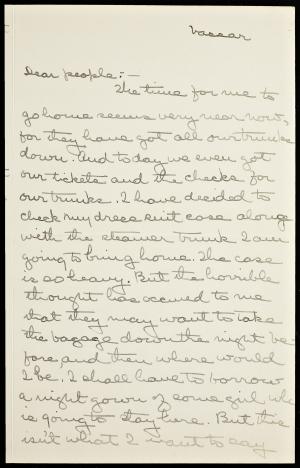 Vassar
Dear people:—
The time for me to
go home seems very near now,
for they have got all our trunks
down. And today we even got
our tickets and the checks for
our trunks. I have decided to
check my dress suit case along
with the steamer trunk I am
going to bring home. The case
is so heavy. But the horrible
thought has occured to me
that they may want to take
the bagage down the night be-
fore, and then where would
I be. I shall have to borrow
a night gown of some girl who
is going to stay here. But this
isn't what I want to say